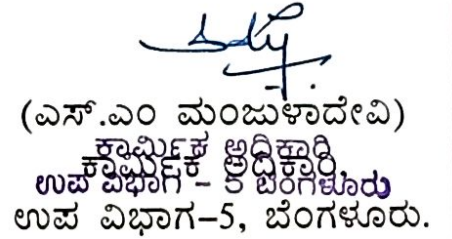 (ಎಸ್.ಎಂ ಮಂಜುಳಾದೇವಿ)
ಕಾರ್ಮಿಕ ಅಧಿಕಾರಿ
ಕಾರ್ಮಿಕ ಅಧಿಕಾರಿ,
ಉಪ ವಿಭಾಗ - 5 ಬೆಂಗಳೂರು
ಉಪ ವಿಭಾಗ-5, ಬೆಂಗಳೂರು.